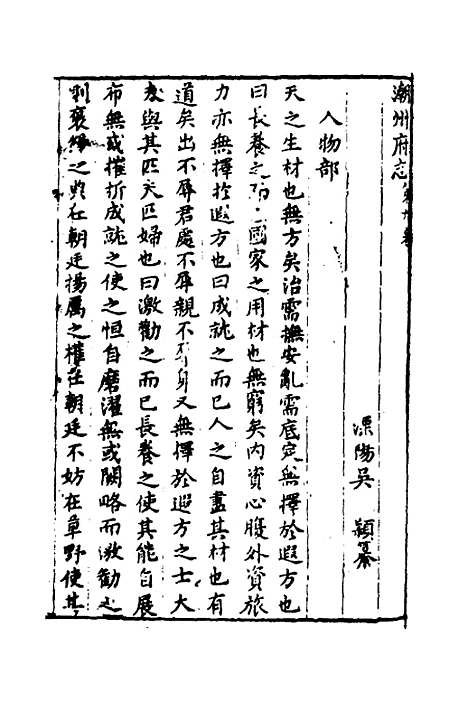 潮州府志
溧陽吳 穎纂
人物部
天之生材也無方矣治需撫安亂需底定無擇於遐方也
曰長養之而國家之用材也無窮矣內資心膂外資旅
力亦無擇於遐方也曰成就之而已人之自盡其材也有
道矣出不辱君處不辱親不辱身又無擇於遐方之士大
夫與其匹夫匹婦也曰激勸之而已長養之使其能自展
布無或摧折成就之使之恒自磨濯無或闕略而激勸之
則褒之典在朝廷揚厲之權在朝廷不妨在草野使其